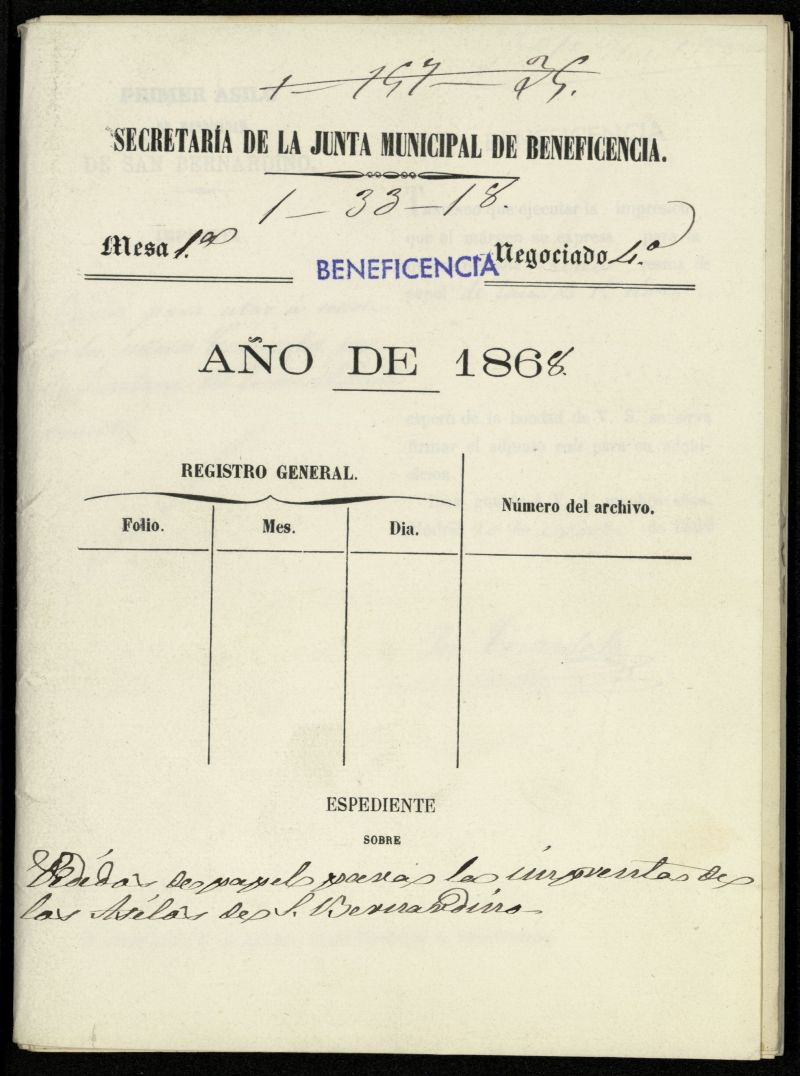 1-157-25.
SECRETARÍA DE LA JUNTA MUNICIPAL DE BENEFICENCIA.
1-33-18.
Mesa 1.ª
Negociado 4.º
BENEFICENCIA
AÑO DE 1868.
REGISTRO GENERAL.
Folio. Mes. Dia.
Número del archivo.
ESPEDIENTE
SOBRE
Pedidos de papel para la imprenta de
los Asilos de S. Bernardino